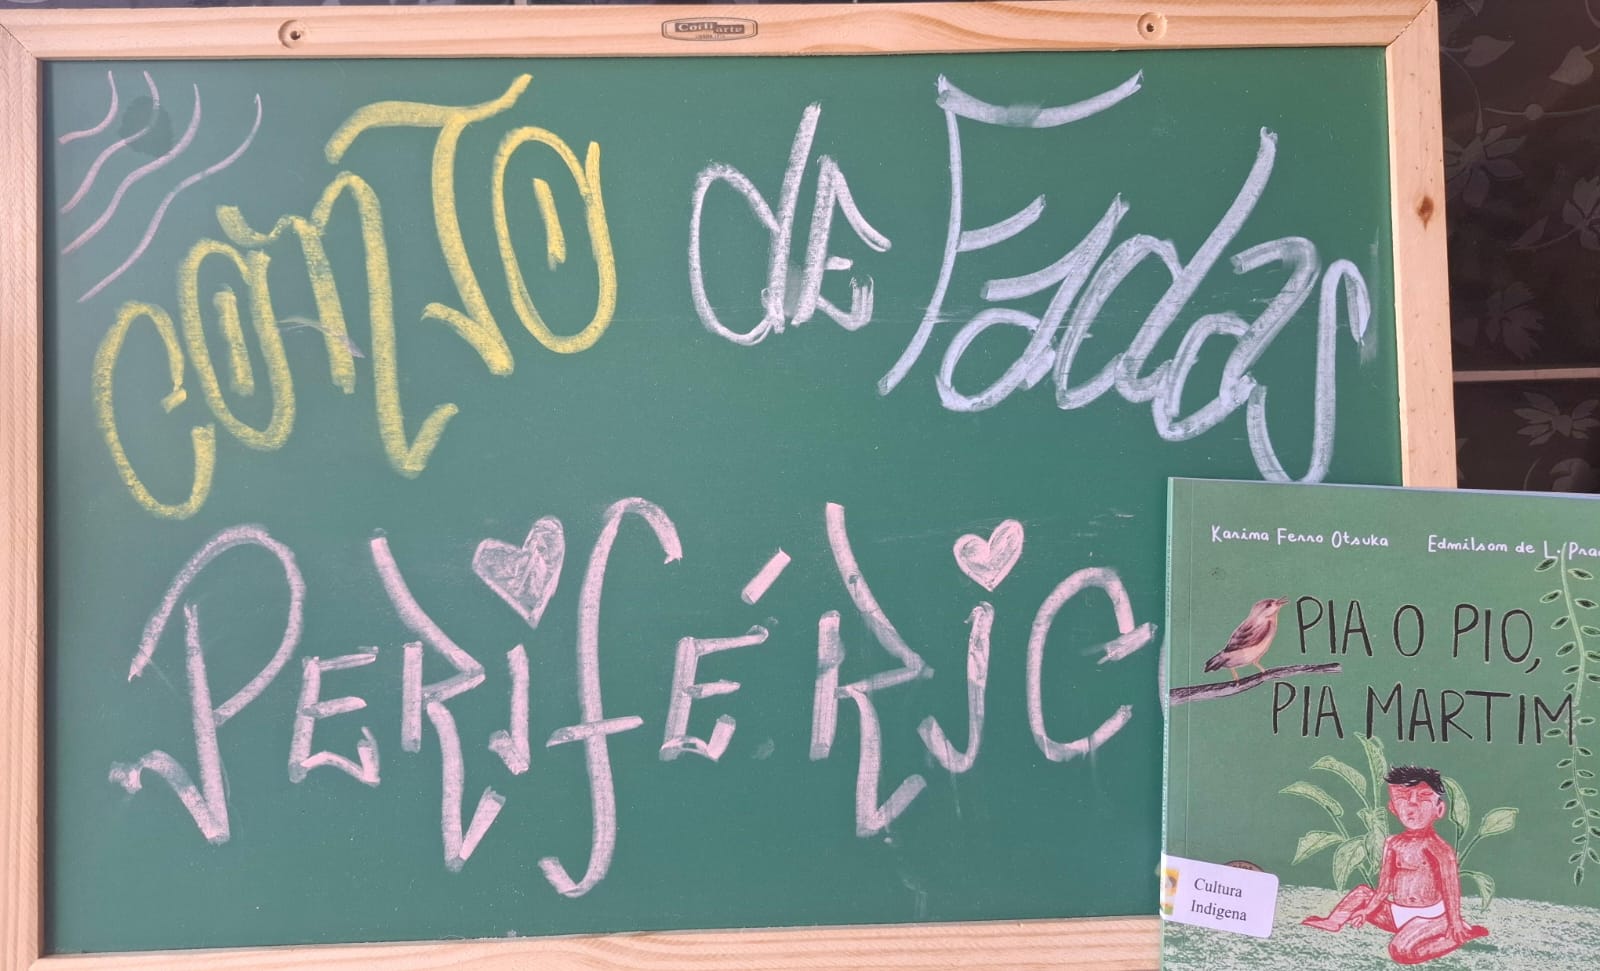 Corti arte
CONTO de Fadas
PERIFÉRIC
Karima Ferro Otsuka Edmilson de L. Pra
PIA O PIO,
PIA MARTIM
Cultura
Indigena